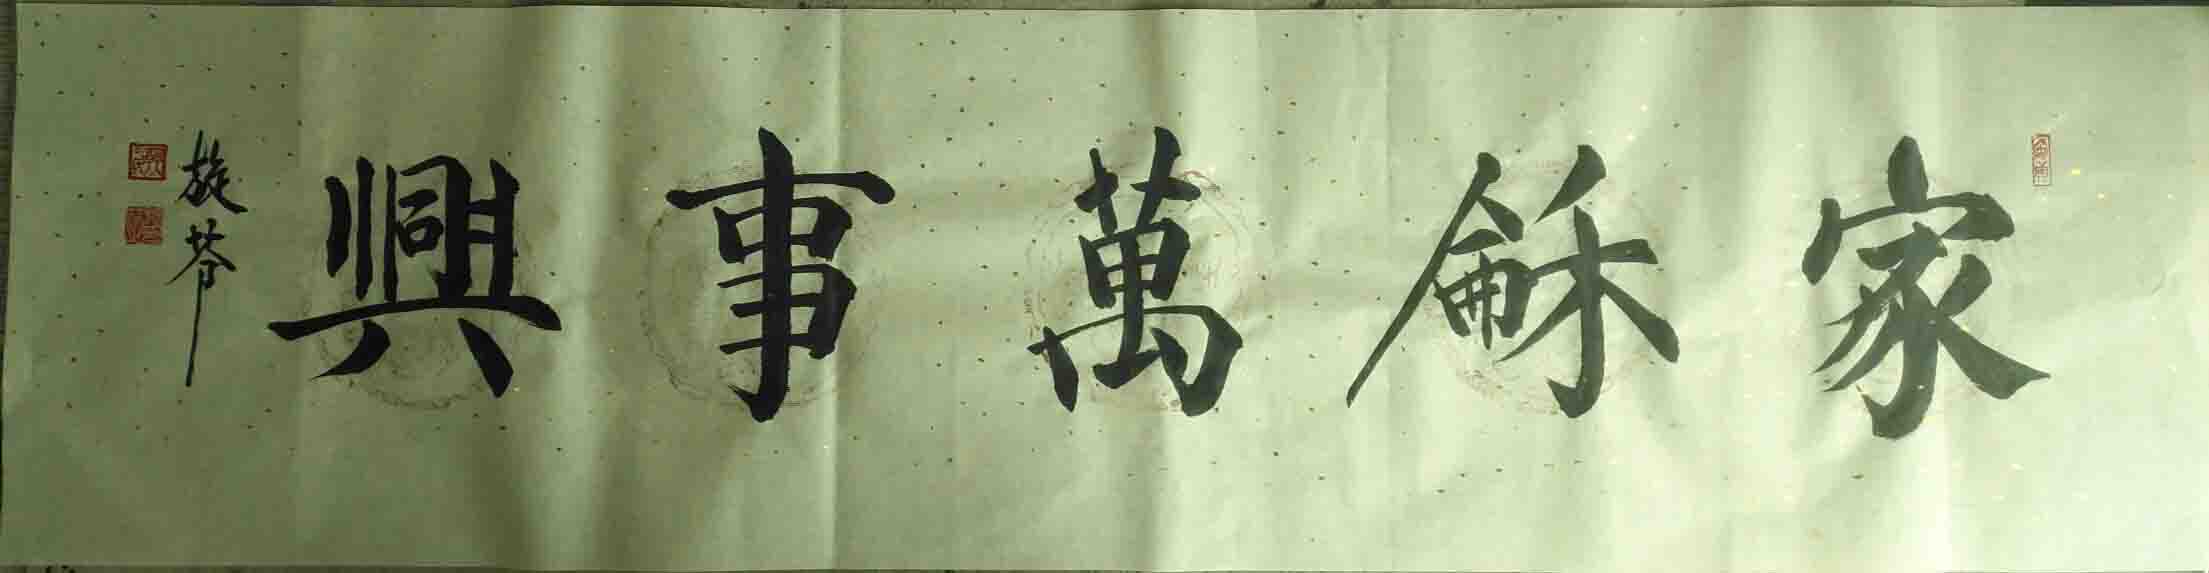 家龢萬事興
旋